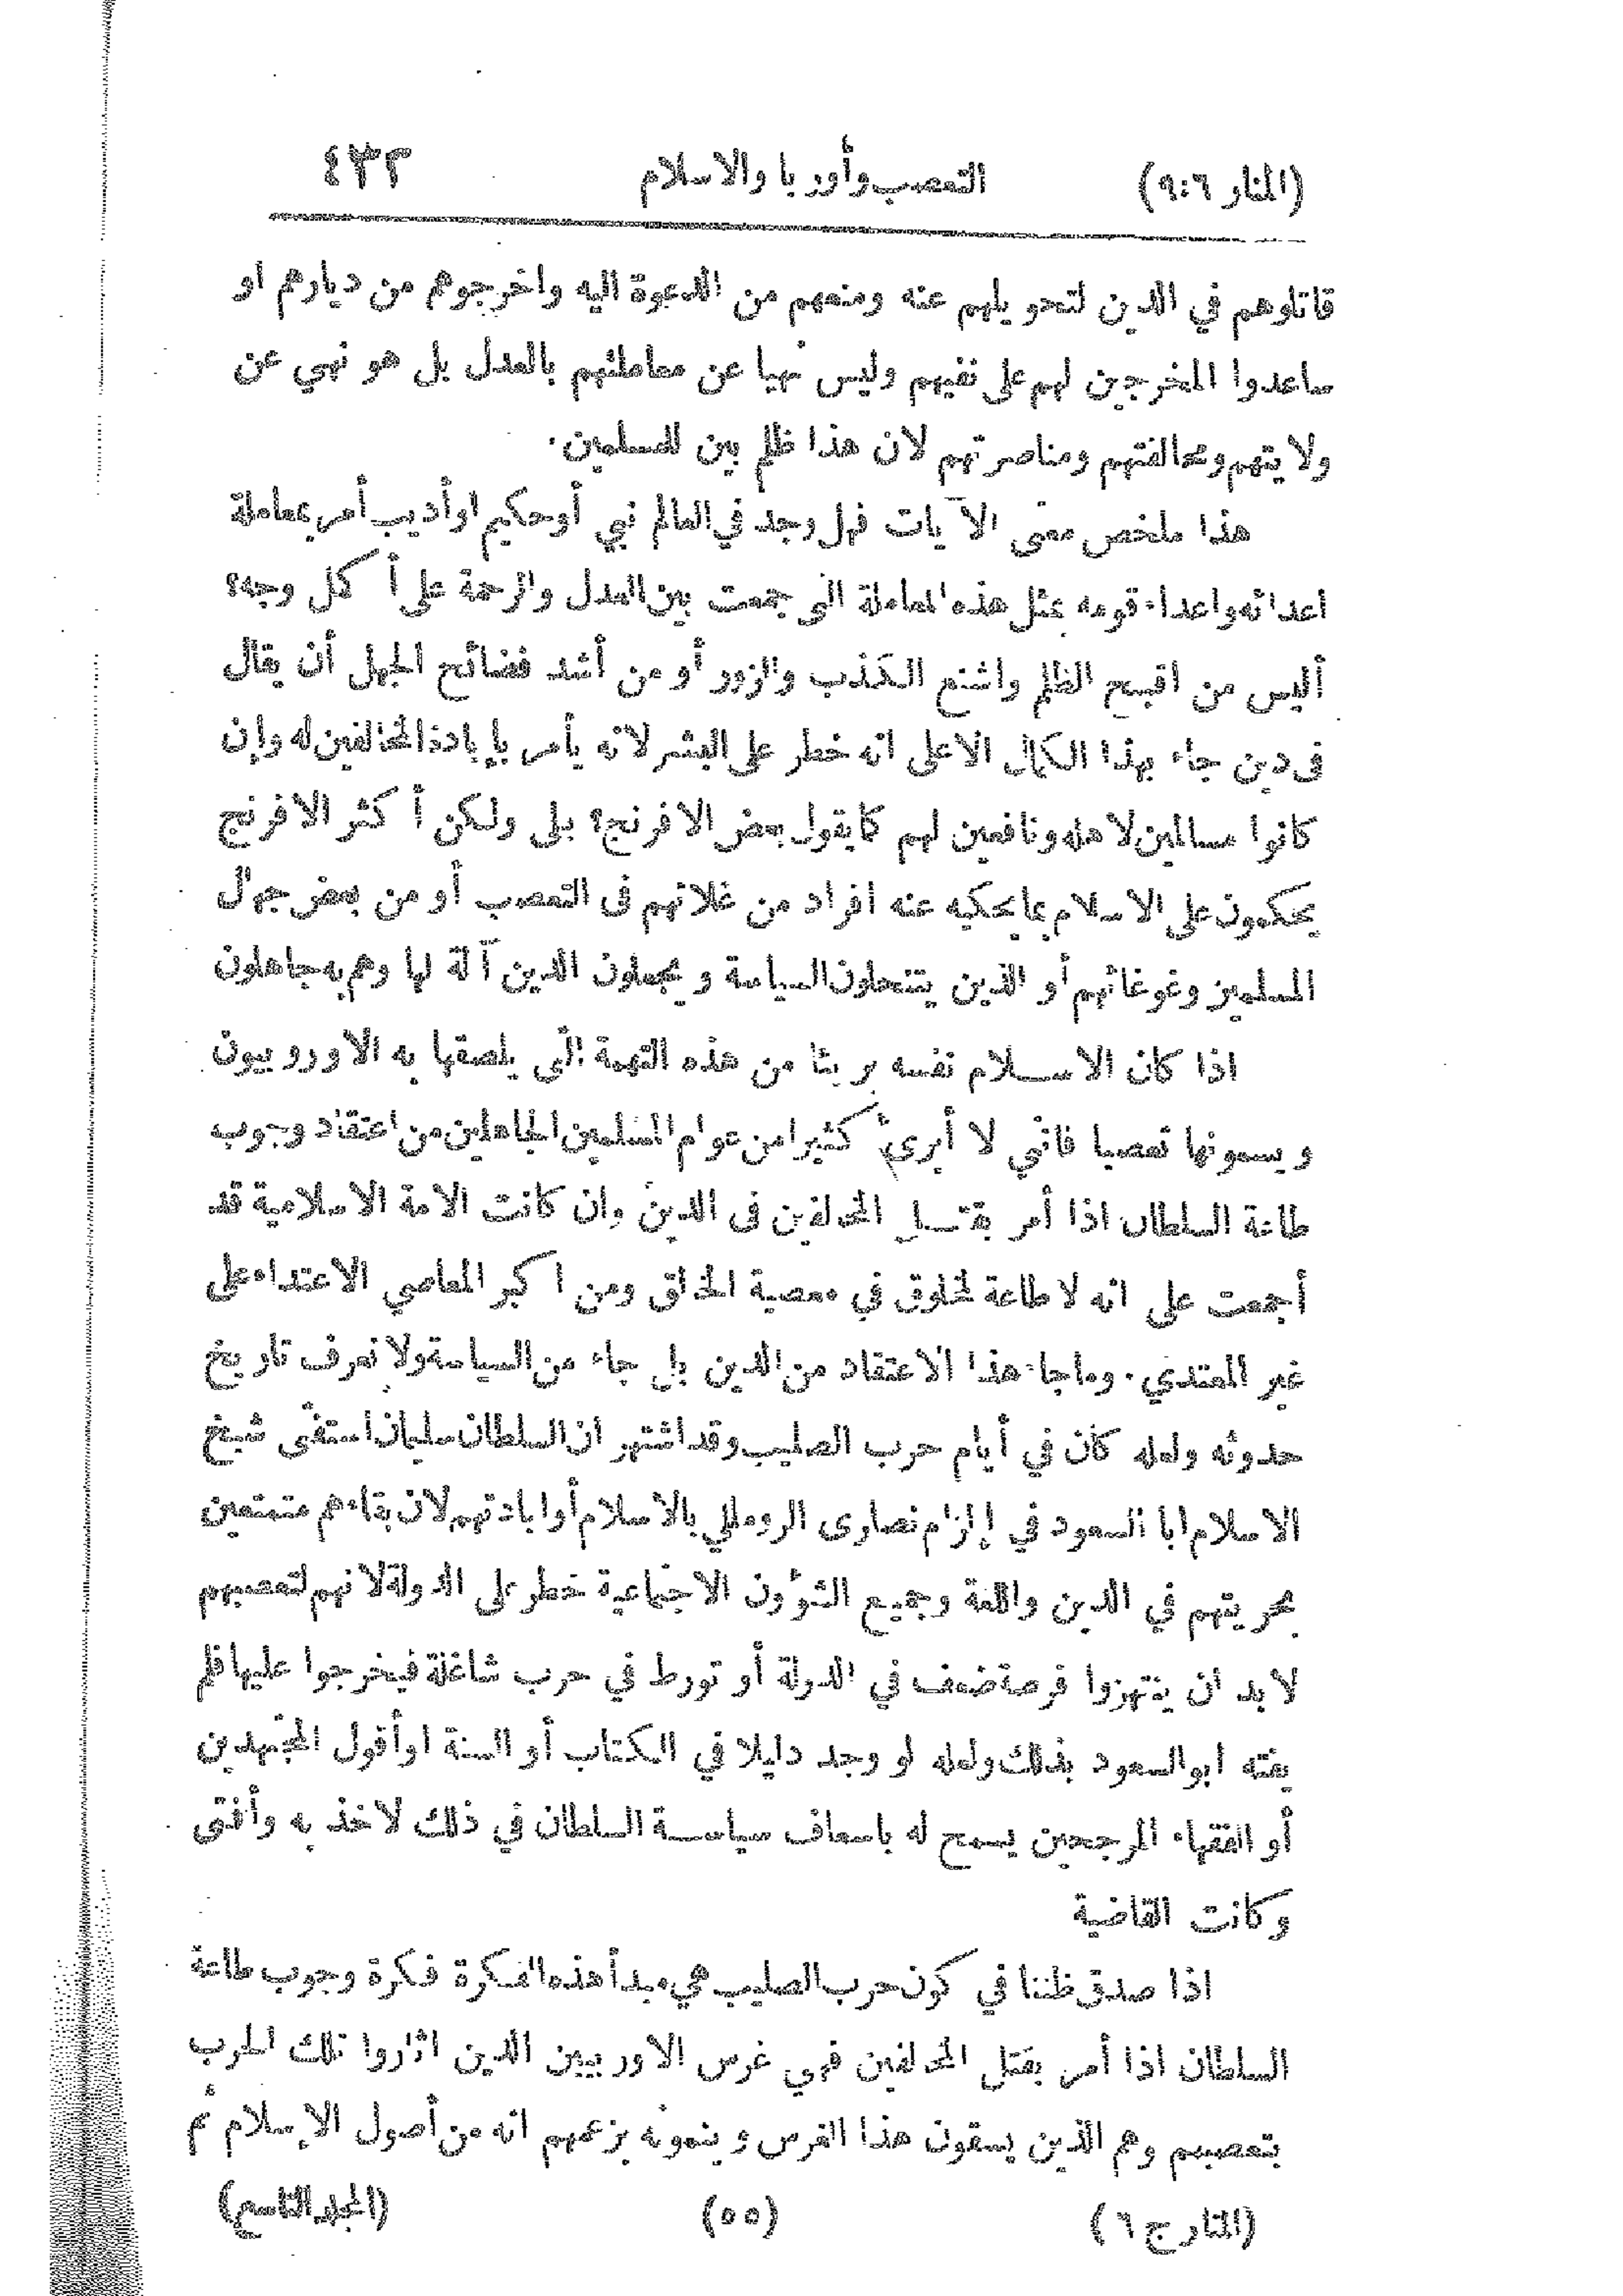 (المنار ٩:٦) التعصب وأوربا والاسلام ٤٣٣
قاتلوهم في الدين لتحويلهم عنه ومنعهم من الدعوة اليه واخرجوهم من ديارهم او
ساعدوا المخرجين لهم على نفيهم وليس نهيا عن معاملتهم بالعدل بل هو نهي عن
ولايتهم ومحالفتهم ومناصرتهم لان هذا ظلم بين للمسلمين.
هذا ملخص معنى الآيات فهل وجد في العالم نبي أو حكيم او أديب أمر بمعاملة
اعدائه واعداء قومه بمثل هذه المعاملة التي جمعت بين العدل والرحمة على أ كمل وجه؟
أليس من اقبح الظلم واشنع الكذب والزور أو من أشد فضائح الجهل أن يقال
فى دين جاء بهذا الكمال الاعلى انه خطر على البشر لانه يأمر بإبادة المخالفين له وإن
كانوا مسالمين لاهله ونافعين لهم كما يقول بعض الافرنج؟ بلى ولكن أ كثر الافرنج
يحكمون على الاسلام بما يحكيه عنه افراد من غلاتهم فى التعصب أو من بعض جهال
المسلمين وغوغائهم أو الذين ينتحلون السياسة ويجعلون الدين آلة لها وهم به جاهلون
اذا كان الاسلام نفسه بريئا من هذه التهمة التي يلصقها به الاوروبيون
ويسمونها تعصبا فاني لا أبرئ كثيرا من عوام المسلمين الجاهلين من اعتقاد وجوب
طاعة السلطان اذا أمر بقتل المخالفين فى الدين وان كانت الامة الاسلامية قد
أجمعت على انه لا طاعة لمخلوق في معصية الخالق ومن ا كبر المعاصي الاعتداء على
غير المعتدي. وما جاء هذا الاعتقاد من الدين بل جاء من السياسة ولا نعرف تاريخ
حدوثه ولعله كان في أيام حرب الصليب وقد اشتهر ان السلطان سليمان استفتى شيخ
الاسلام ابا السعود في إلزام نصارى الروملي بالاسلام أو ابادتهم لان بقاءهم متمتعين
بحريتهم في الدين واللغة وجميع الشؤون الاجتماعية خطر على الدولة لانهم لتعصبهم
لا بد ان ينتهزوا فرصة ضعف في الدولة أو تورط في حرب شاغلة فيخرجوا عليها فلم
يفته ابو السعود بذلك ولعله لو وجد دليلا في الكتاب أو السنة او أقول المجتهدين
أو الفقهاء المرجحين يسمح له باسعاف سياسة السلطان في ذلك لاخذ به وأفتى
وكانت القاضية
اذا صدق ظننا في كون حرب الصليب هي مبدأ هذه الفكرة فكرة وجوب طاعة
السلطان اذا أمر بقتل المخالفين فهي غرس الاوربيين الذين اثاروا تلك الحرب
بتعصبهم وهم الذين يسقون هذا الغرس وينمونه بزعمهم انه من أصول الإسلام ثم
(المنار ج ٦) (٥٥) (المجلد التاسع)